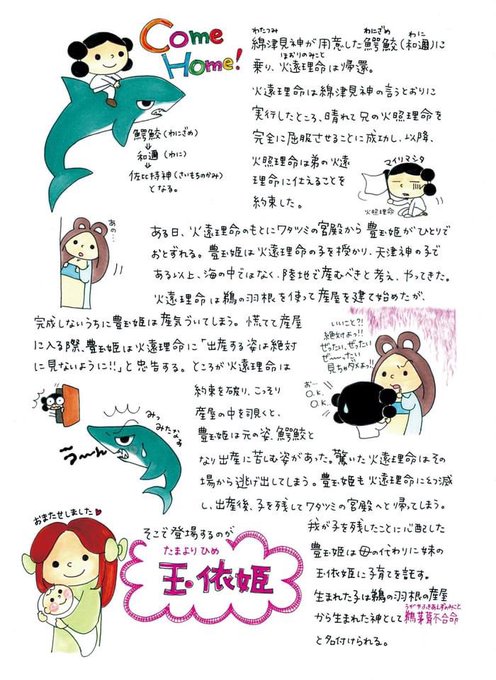 Come Home!
綿津見神が用意した鰐鮫(和邇)に
わたつみ
わにざめ
わに
乗り、火遠理命は帰還。
ほおりのみこと
火遠理命は綿津見神の言うとおりに
実行したところ、晴れて兄の火照理命を
完全に屈服させることに成功し、以降、
火照理命は弟の火遠
理命に仕えることを
約束した。
鰐鮫(わにざめ)
⇓
和邇(わに)
⇓
佐比持神(さいもちのかみ)
となる。
マイリマシタ
火照理命
あの…
ある日、火遠理命のもとにワタツミの宮殿から豊玉姫がひとりで
おとずれる。豊玉姫は火遠理命の子を授かり、天津神の子で
ある以上、海の中ではなく、陸地で産むべきと考え、やってきた。
火遠理命は鵜の羽根を使って産屋を建て始めたが、
完成しないうちに豊玉姫は産気づいてしまう。慌てて産屋
に入る際、豊玉姫は火遠理命に「出産する姿は絶対
に見ないように!!」と忠告する。ところが火遠理命は
約束を破り、こっそり
産屋の中を覗くと、
豊玉姫は元の姿、鰐鮫と
なり出産に苦しむ姿があった。驚いた火遠理命はその
場から逃げ出してしまう。豊玉姫も火遠理命に幻滅
し、出産後、子を残してワタツミの宮殿へと帰ってしまう。
いいこと?!
絶対よっ!!
ぜったい、ぜったい
ぜ〜〜たい
見ちゃダメよっ!!
お…
O.K.
O.K.
みっ
みたなぁ
う〜ん
おまたせしました♥
そこで登場するのが
たまよりひめ
玉依姫
我が子を残したことに心配した
豊玉姫は母の代わりに妹の
玉依姫に子育てを託す。
生まれた子は鵜の羽根の産屋
から生まれた神として鵜葺草葺不合命
うがやふきあえずのみこと
と名付けられる。